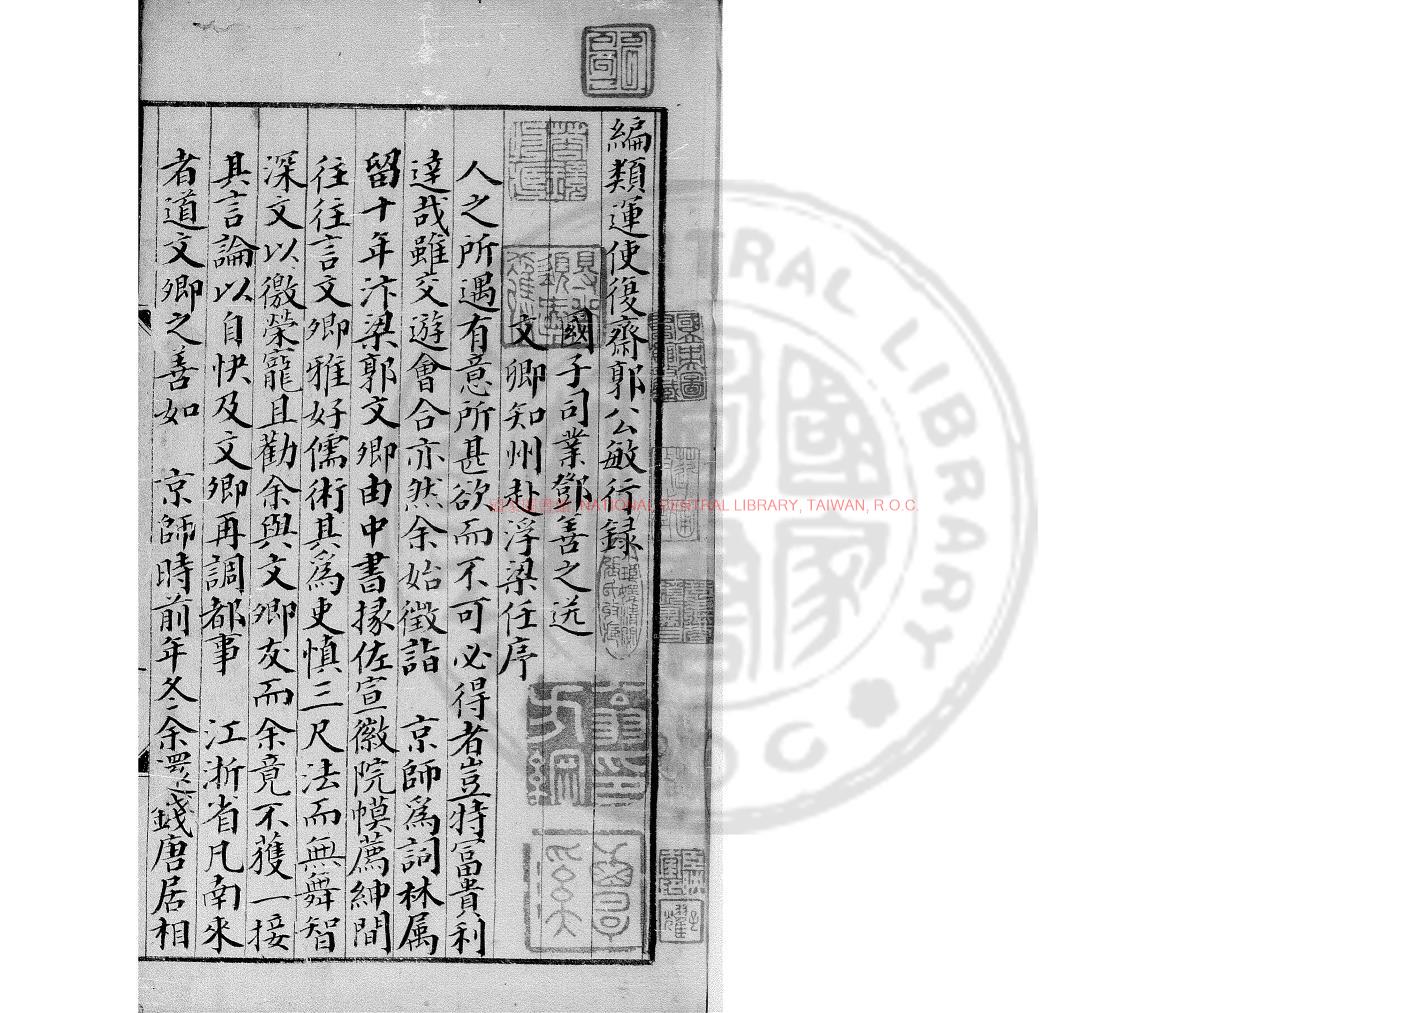 編類運使復齋郭公敏行録
國子司業鄧善之送
文卿知州赴浮梁任序
人之所遇有意所甚欲而不可必得者豈特富貴利
達哉雖交遊會合亦然余始徵詣 京師爲詞林属
留十年汴梁郭文卿由中書掾佐宣徽院幙薦紳間
往往言文卿雅好儒術其爲吏慎三尺法而無舞智
深文以徼榮寵且勸余與文卿友而余竟不獲一接
其言論以自快及文卿再調都事 江浙省凡南來
者道文卿之善如 京師時前年冬余還錢唐居相
NATIONAL CENTRAL LIBRARY, TAIWAN, R.O.C.